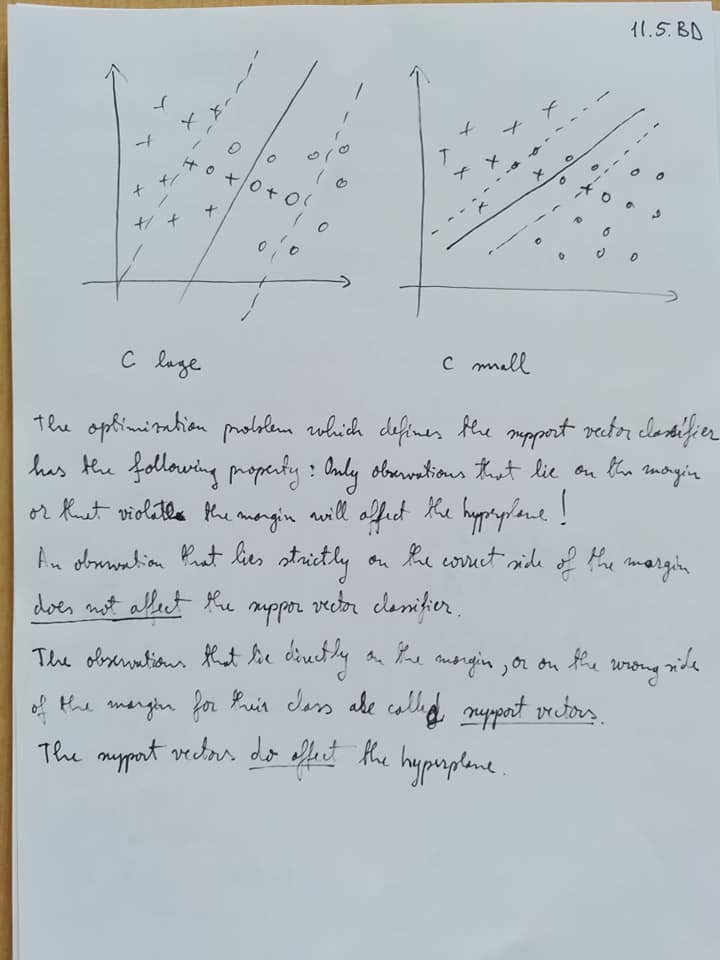 11.5.BD
C large
C small
The optimization problem which defines the support vector classifier
has the following property: Only observations that lie on the margin
or that violate the margin will affect the hyperplane!
An observation that lies strictly on the correct side of the margin
does not affect the suppor vector classifier.
The observations that lie directly on the margin, or on the wrong side
of the margin for their class are called support vectors.
The support vectors do affect the hyperplane.